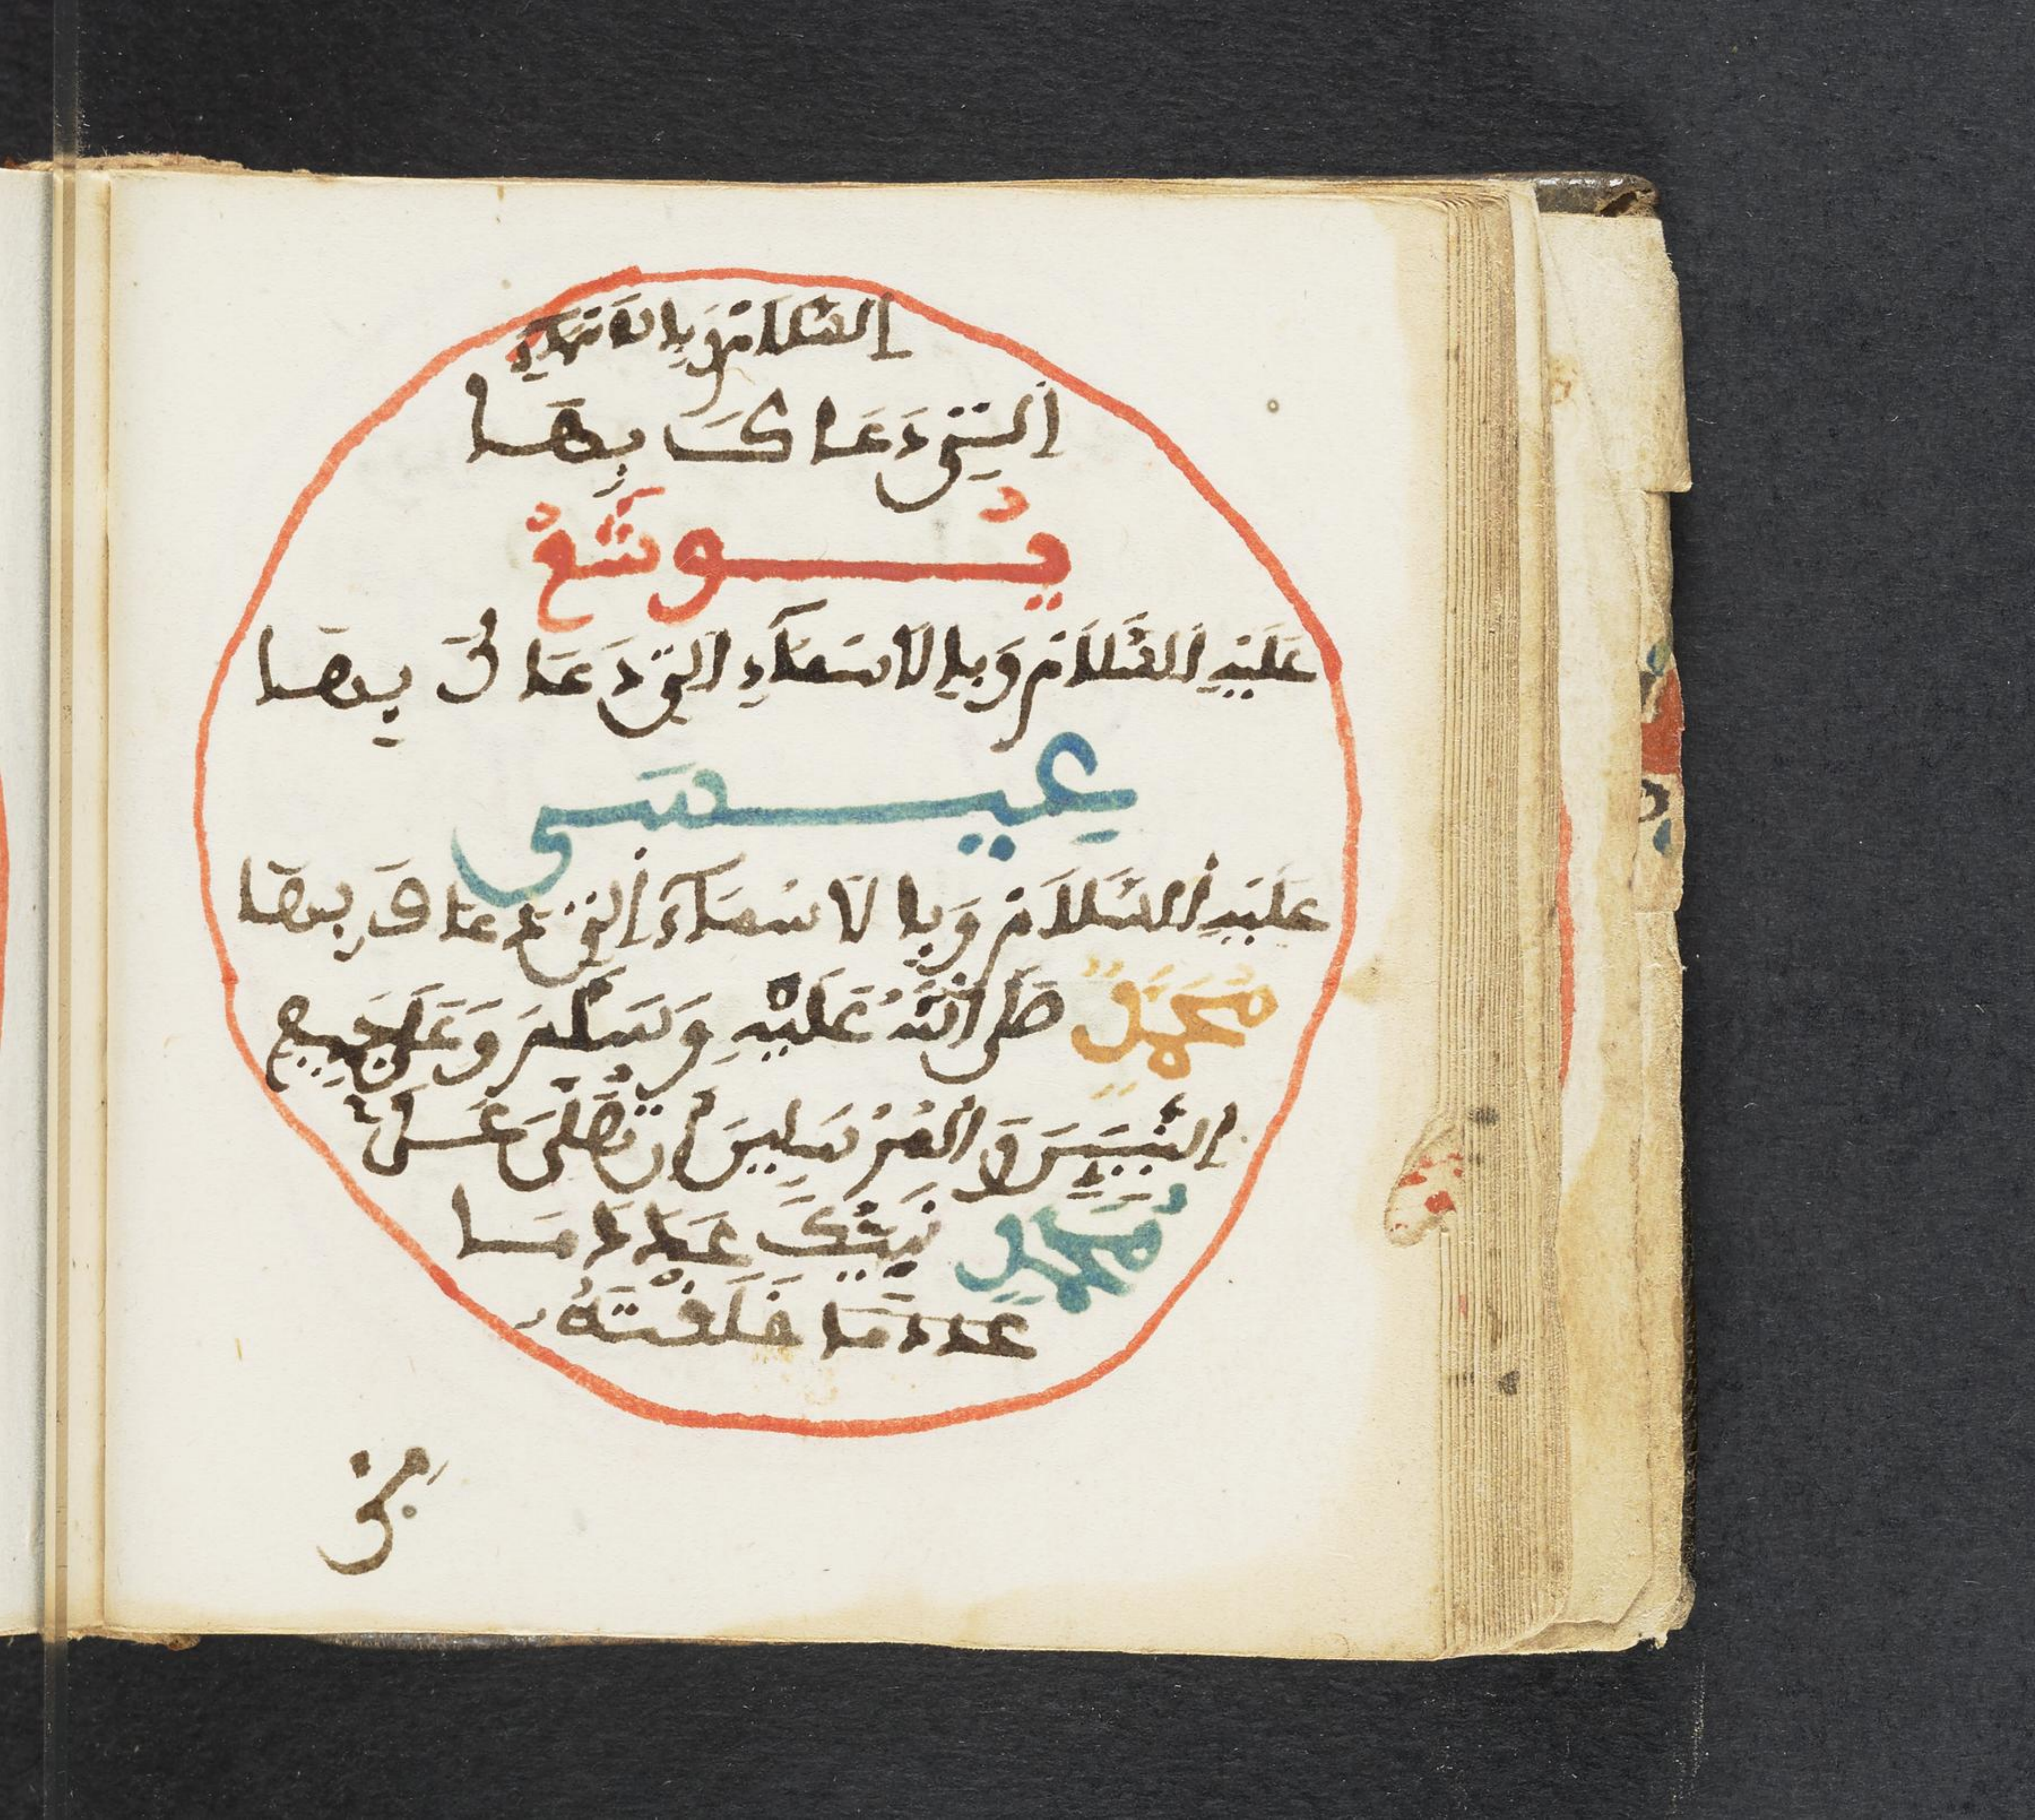 السَّلَامُ وَبِالَاسْمَآءِ
اَلَّتِي دَعَاكَ بِهَا
يُوشَعُ
عَلَيْهِ اِلسَّلَامُ وَبِالَاسْمَآءِ التِي دَعَاكَ بِهَا
عِيسَى
عَلَيْهِ اِلسَّلَامُ وَبِالَاسْمَآءِ اَلتِي دَعَاكَ بِهَا
مُحَمَّدٌ صَلَّى اللَّهُ عَلَيْهِ وَسَلَّمَ وَعَلَى جَمِيعِ
النَّبِيِّينَ وَالْمُرْسَلِينَ أَن تُصَلِّيَ عَلَى
مُحَمَّدٍ نَبِيِّكَ عَدَدَ مَا
عَدَدَ مَا خَلَقْتَهُ
مِن